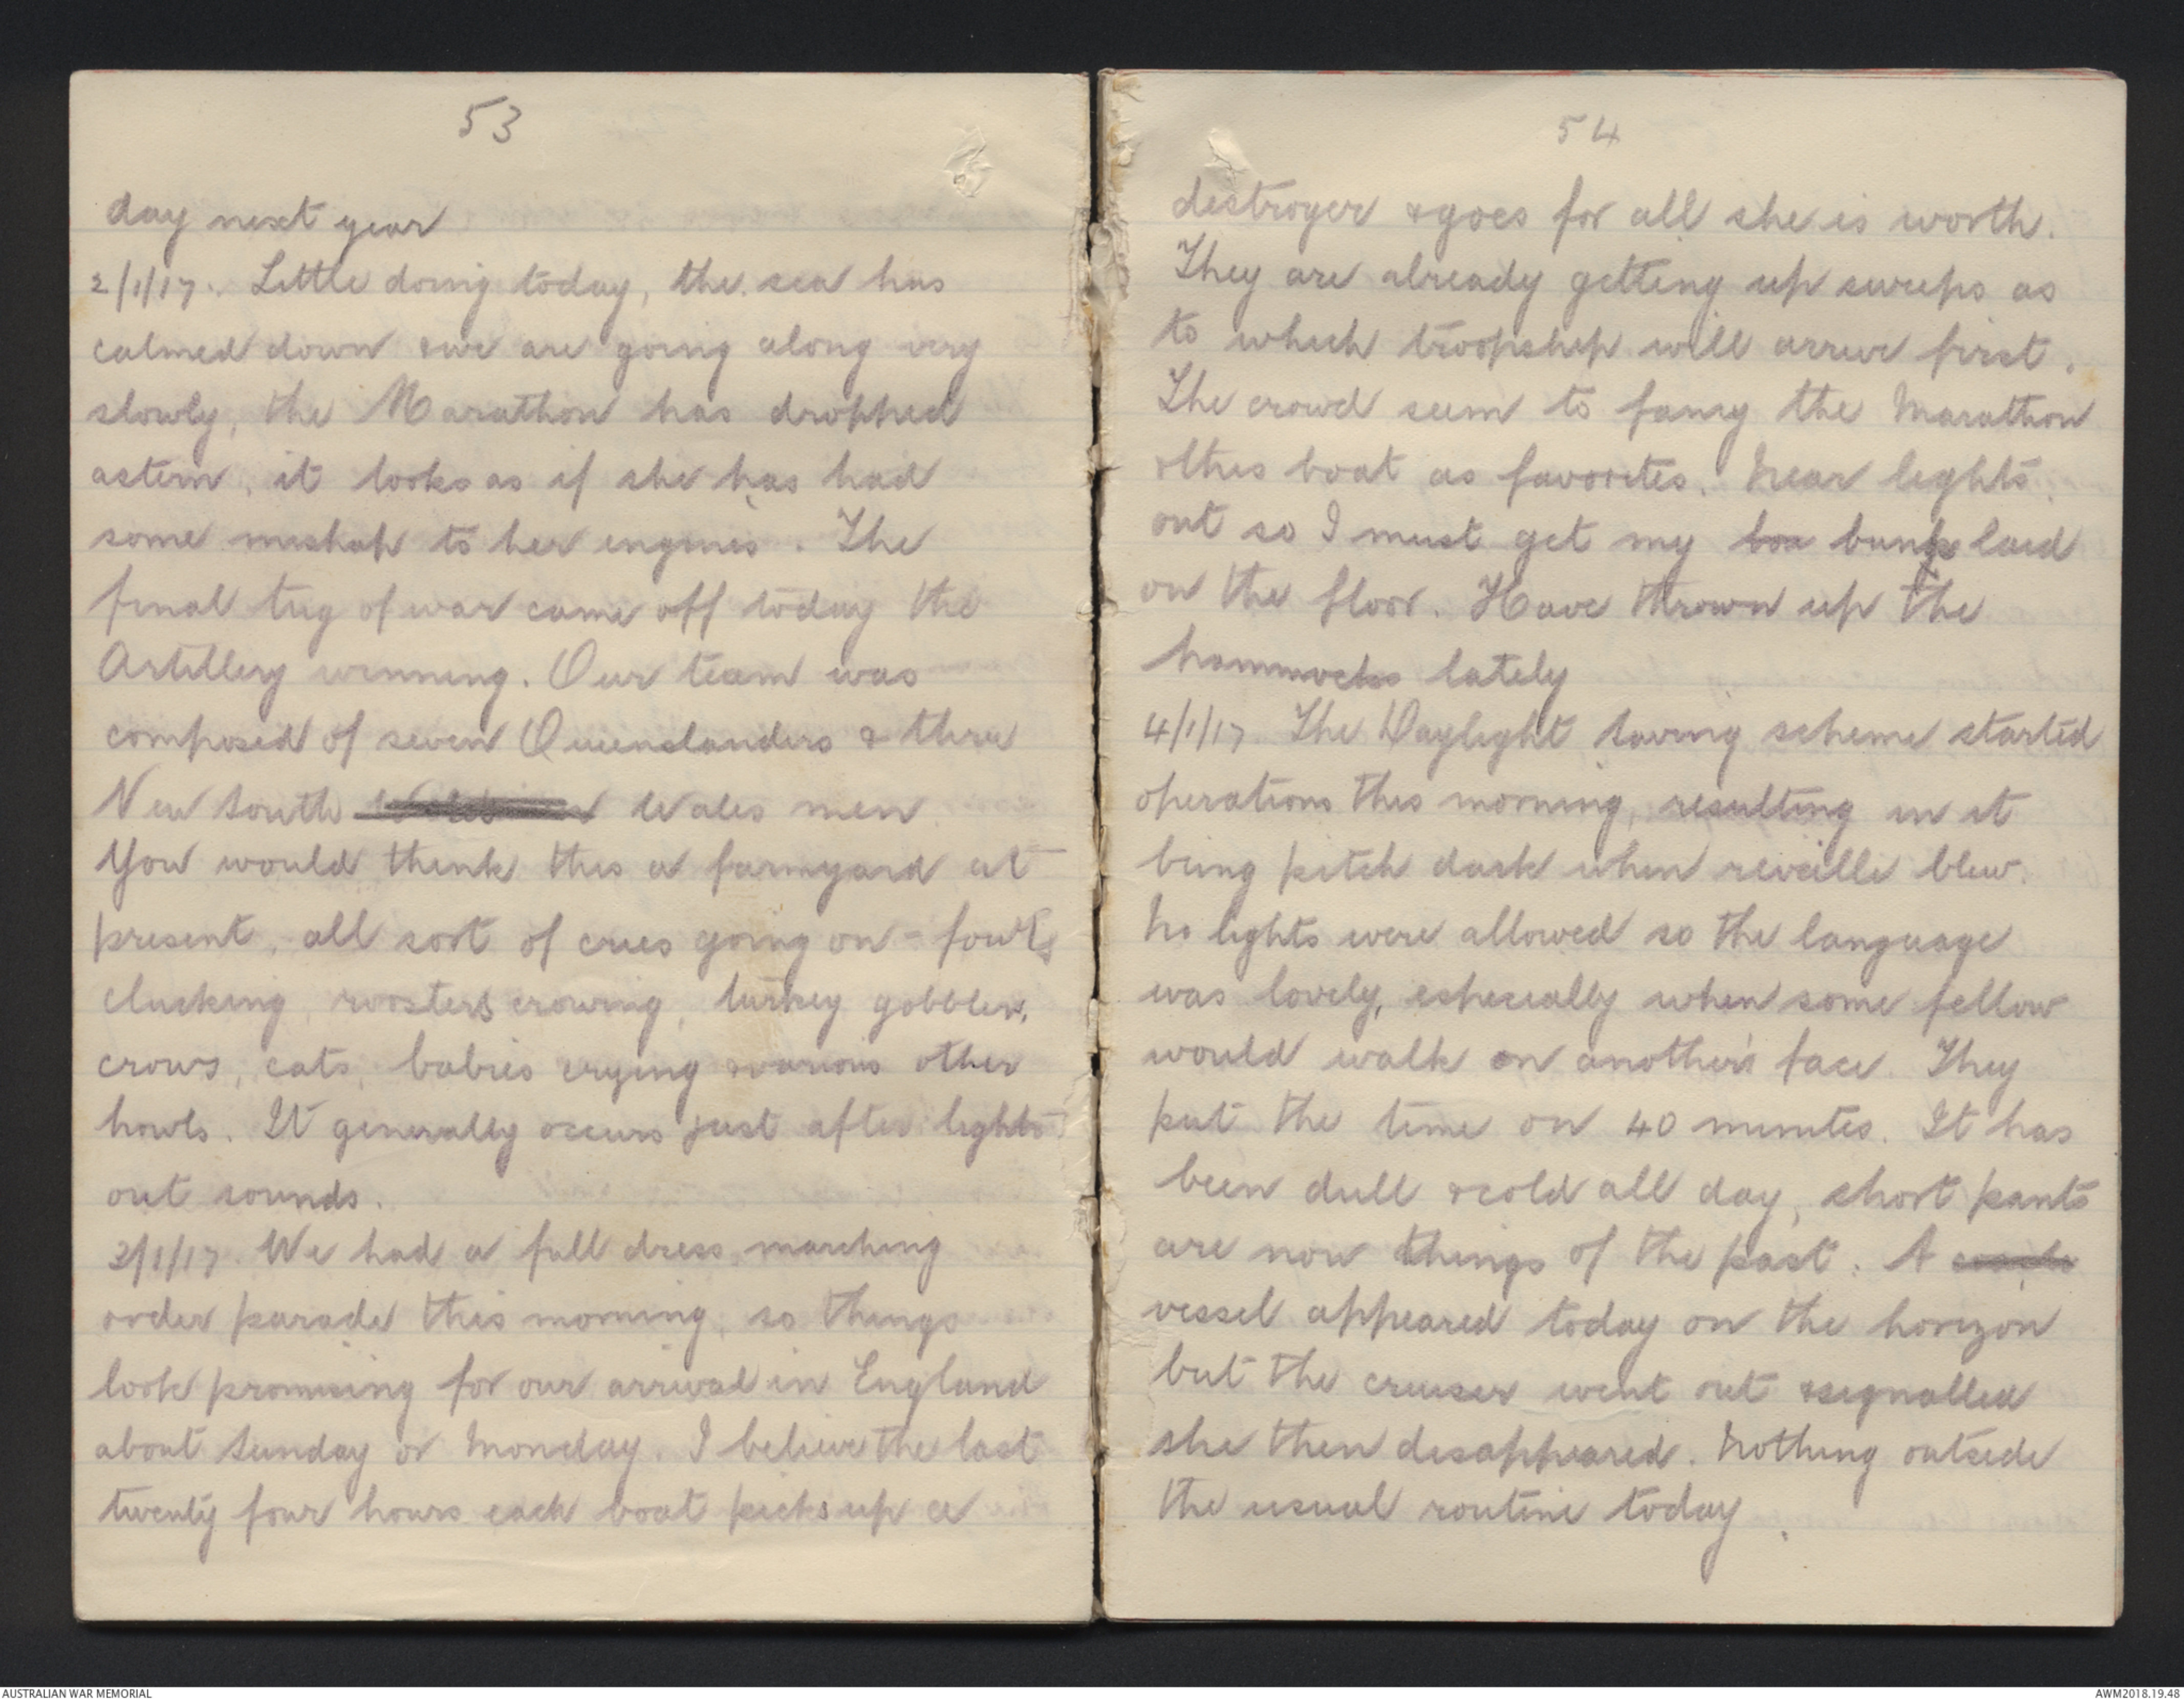 53
day next year
2/1/17. Little doing today, the sea has
calmed down & we are going along very
slowly, the Marathon has dropped
astern, it looks as if she has had
some mishap to her engines. The
final tug of war came off today the
Artillery winning. Our team was
composed of seven Queenslanders & three
New South Wales men
You would think this a farmyard at
present, all sort of cries going on - fowls
clucking, roosters crowing, turkey gobblers,
crows, cats, babies crying & various other
howls. It generally occurs just after lights
out sounds.
3/1/17. We had a full dress marching
order parade this morning, so things
look promising for our arrival in England
about Sunday or Monday. I believe the last
twenty four hours each boat picks up a
54
destroyer & goes for all she is worth.
They are already getting up sweeps as
to which troopship will arrive first.
The crowd seem to fancy the Marathon
& this boat as favorites. Near lights
out so I must get my bunk laid
on the floor. Have thrown up the
hammocks lately
4/1/17 The Daylight Saving scheme started
operations this morning, resulting in it
being pitch dark when reveille blew.
No lights were allowed so the language
was lovely, especially when some fellow
would walk on another's face. They
put the time on 40 minutes. It has
been dull & cold all day, short pants
are now things of the past. A
vessel appeared today on the horizon
but the cruiser went out & signalled
she then disappeared. Nothing outside
the usual routine today.
AUSTRALIAN WAR MEMORIAL
AWM2018.19.48